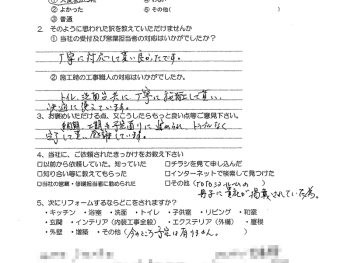 ② よかった　⑤ その他(　　)
③ 普通
2. そのように思われた訳を教えていただけませんか
① 当社の受付及び営業担当者の対応はいかがでしたか？
丁寧に対応して貰い良かったです。
② 施工時の工事職人の対応はいかがでしたか？
トイレ、洗面台共に、丁寧に施工して貰い、
快適に使えています。
3. お褒めいただける点、又こうしたらもっと良い点等ご意見下さい。
工期も予定通りに進められ、トラブルなく
完了して貰い、感謝しています。
4. 当社に、ご依頼されたきっかけをお教え下さい
□以前から依頼していた、知っていた　□チラシを見て申し込んだ
□知り合い等に教えてもらった　□インターネットで検索して見つけた
□当社の営業・修繕担当者に勧められた　□その他(
冊子に 掲載されていた為。
5. 次にリフォームするならどこをされますか？
・キッチン　・浴室　・洗面　・トイレ　・子供室　・リビング　・和室
・玄関　・インテリア（内装工事全般）　・エクステリア（外構）　・屋根
・外壁　・増築　・その他（今のところ予定は有りません。）